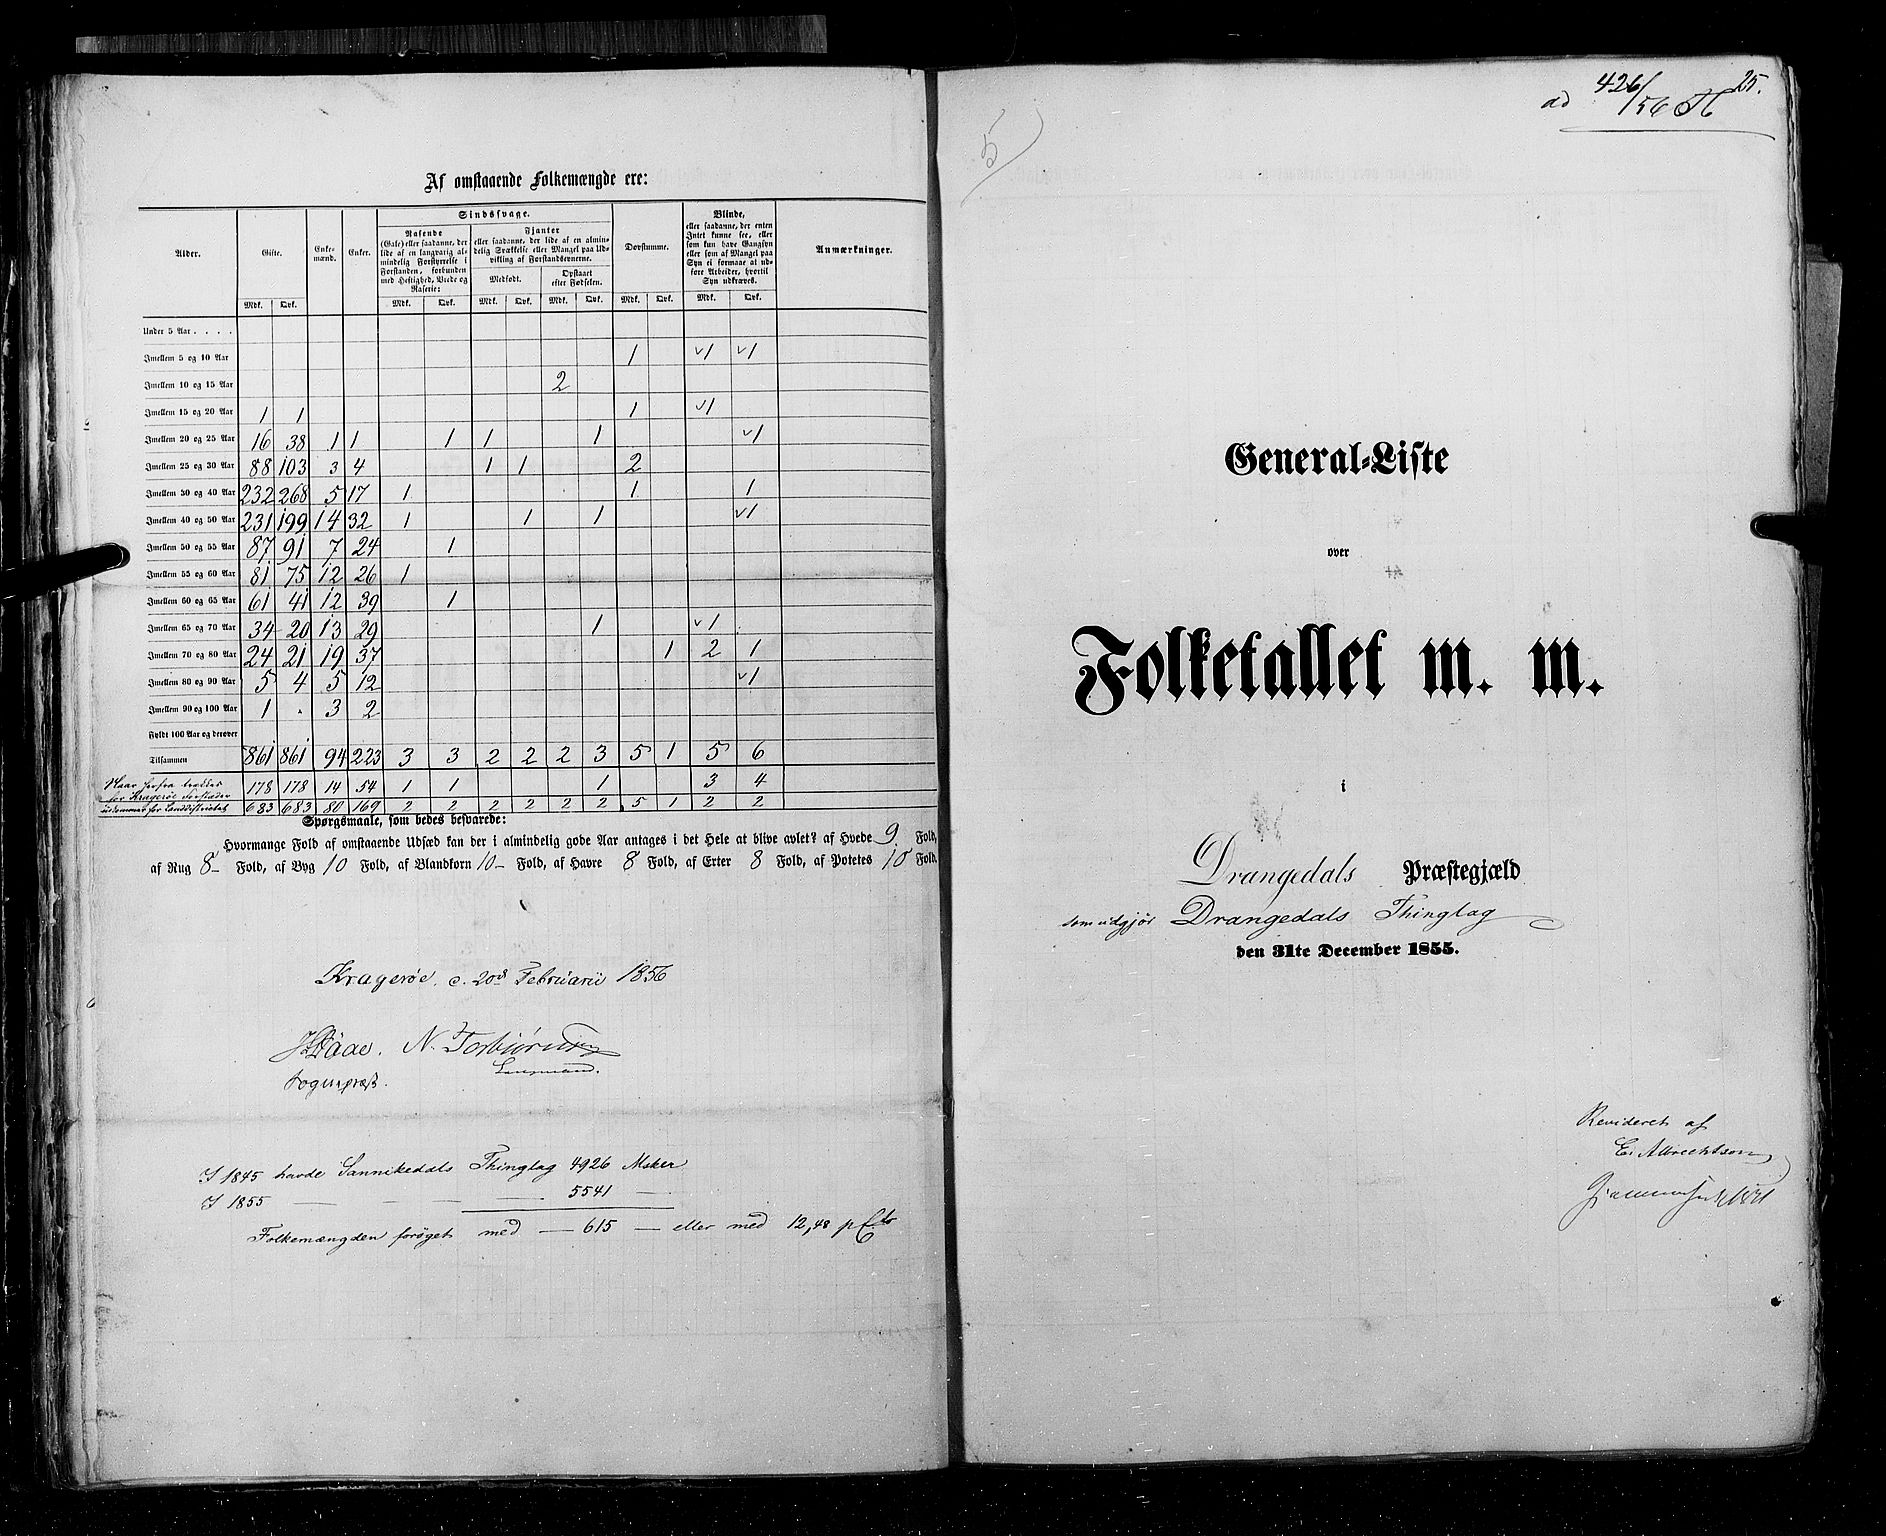 Af omstaaende Folkemængde ere:
Alder. Gifte. Enke-mænd. Enker. Sindssvage. Døvstumme. Blinde, Anmærkninger.
Rasende (Gale) eller saadanne, der lide af en langvarig almindelig Forstyrrelse i Forstanden, forbunden med Heftighed, Vrede og Raserie:
Fjanter eller saadanne, der lide af en almindelig Svækkelse eller Mangel paa Udvikling af Forstandsevnerne.
Medfødt. Opstaaet efter Fødselen.
eller saadanne, der enten Intet kunne see, eller som kun have Gangsyn eller som af Mangel paa Syn ei formaae at udføre Arbeider, hvortil Syn udkræves.
Mdk. Qvk. Mdk. Qvk. Mdk. Qvk. Mdk. Qvk. Mdk. Qvk. Mdk. Qvk.
Under 5 Aar . . . .
Imellem 5 og 10 Aar 1 √1 √1
Imellem 10 og 15 Aar 2
Imellem 15 og 20 Aar 1 1 1 √1
Imellem 20 og 25 Aar 16 38 1 1 1 1 1 √1
Imellem 25 og 30 Aar 88 103 3 4 1 1 2
Imellem 30 og 40 Aar 232 268 5 17 1 1 1
Imellem 40 og 50 Aar 231 199 14 32 1 1 1 √1
Imellem 50 og 55 Aar 87 91 7 24 1
Imellem 55 og 60 Aar 81 75 12 26 1
Imellem 60 og 65 Aar 61 41 12 39 1
Imellem 65 og 70 Aar 34 20 13 29 1 √1
Imellem 70 og 80 Aar 24 21 19 37 1 2 1
Imellem 80 og 90 Aar 5 4 5 12 √1
Imellem 90 og 100 Aar 1 . 3 2
Fyldt 100 Aar og derover
Tilsammen 861 861 94 223 3 3 2 2 2 3 5 1 5 6
Naar herfra trækkes for Kragerøe Forstæder 178 178 14 54 1 1 1 3 4
udkommer for Landdistrictet 683 683 80 169 2 2 2 2 2 2 5 1 2 2
Spørgsmaale, som bedes besvarede:
Hvormange Fold af omstaaende Udsæd kan der i almindelig gode Aar antages i det Hele at blive avlet? af Hvede 9. Fold,
af Rug 8- Fold, af Byg 10 Fold, af Blandkorn 10- Fold, af Havre 8 Fold, af Erter 8 Fold, af Potetes 10 Fold.
Kragerøe, d. 20de Februarii 1856
Daae. N. Torbiørnsen
Sognepræst. Lensmand.
I 1845 havde Sannikedals Thinglag 4926 Msker
I 1855 — — — — 5541 —
Folkemængden forøget med — 615 — eller med 12,48 p Cto
5
ad 426/56 H
25.
General-Liste
over
Folketallet m. m.
i
Drangedals Præstegjæld
som udgjør Drangedals Thinglag
den 31te December 1855.
Revideret af
E. Albrechtson